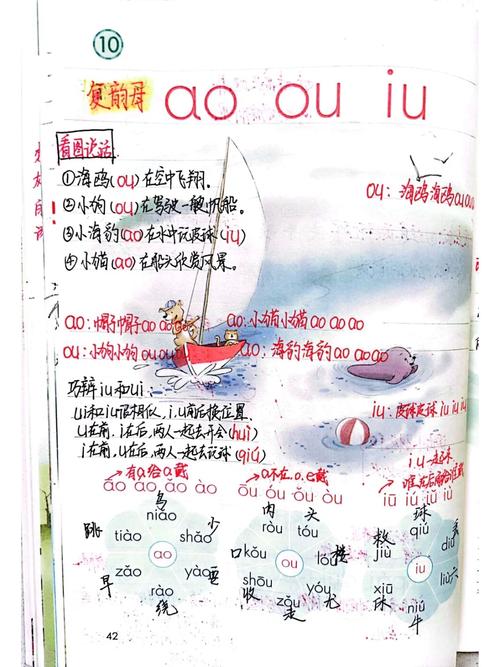 10
复韵母 ao ou iu
看图说话
①海鸥(ou)在空中飞翔。
②小狗(ou)在驾驶一艘帆船。
③小海豹(ao)在水中玩皮球(iu)
④小猫(ao)在船头欣赏风景。
ou:海鸥海鸥ou ou ou
ao:帽子帽子ao ao ao
ao:小猫小猫ao ao ao
ou:小狗小狗ou ou ou
ao:海豹海豹ao ao ao
iu:皮球皮球iu iu iu
巧辨iu和ui:
ui和iu很相似,i,u前后换位置.
u在前,i在后,两人一起去开会(huì)
i在前,u在后,两人一起去玩球(qiú)
→有a给a戴
→a不在,o.e戴
i.u一起来
谁在后面给谁戴
āo áo ǎo ào
ōu óu ǒu òu
iū iú iǔ iù
鸟
niǎo
跳 tiào
shǎo 少
ao
早 zǎo
yào 要
rào
绕
肉 头
ròu tóu
口 kǒu
lóu 楼
ou
shōu
收
yóu
尤
zǒu
走
球
qiú
救
jiù
diū 丢
iu
liù 六
xiū
休
niú
牛
42